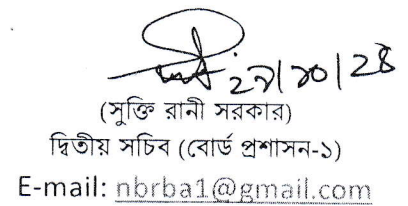 ২৯/১০/২৪
(সুক্তি রানী সরকার)
দ্বিতীয় সচিব (বোর্ড প্রশাসন-১)
E-mail: nbrba1@gmail.com